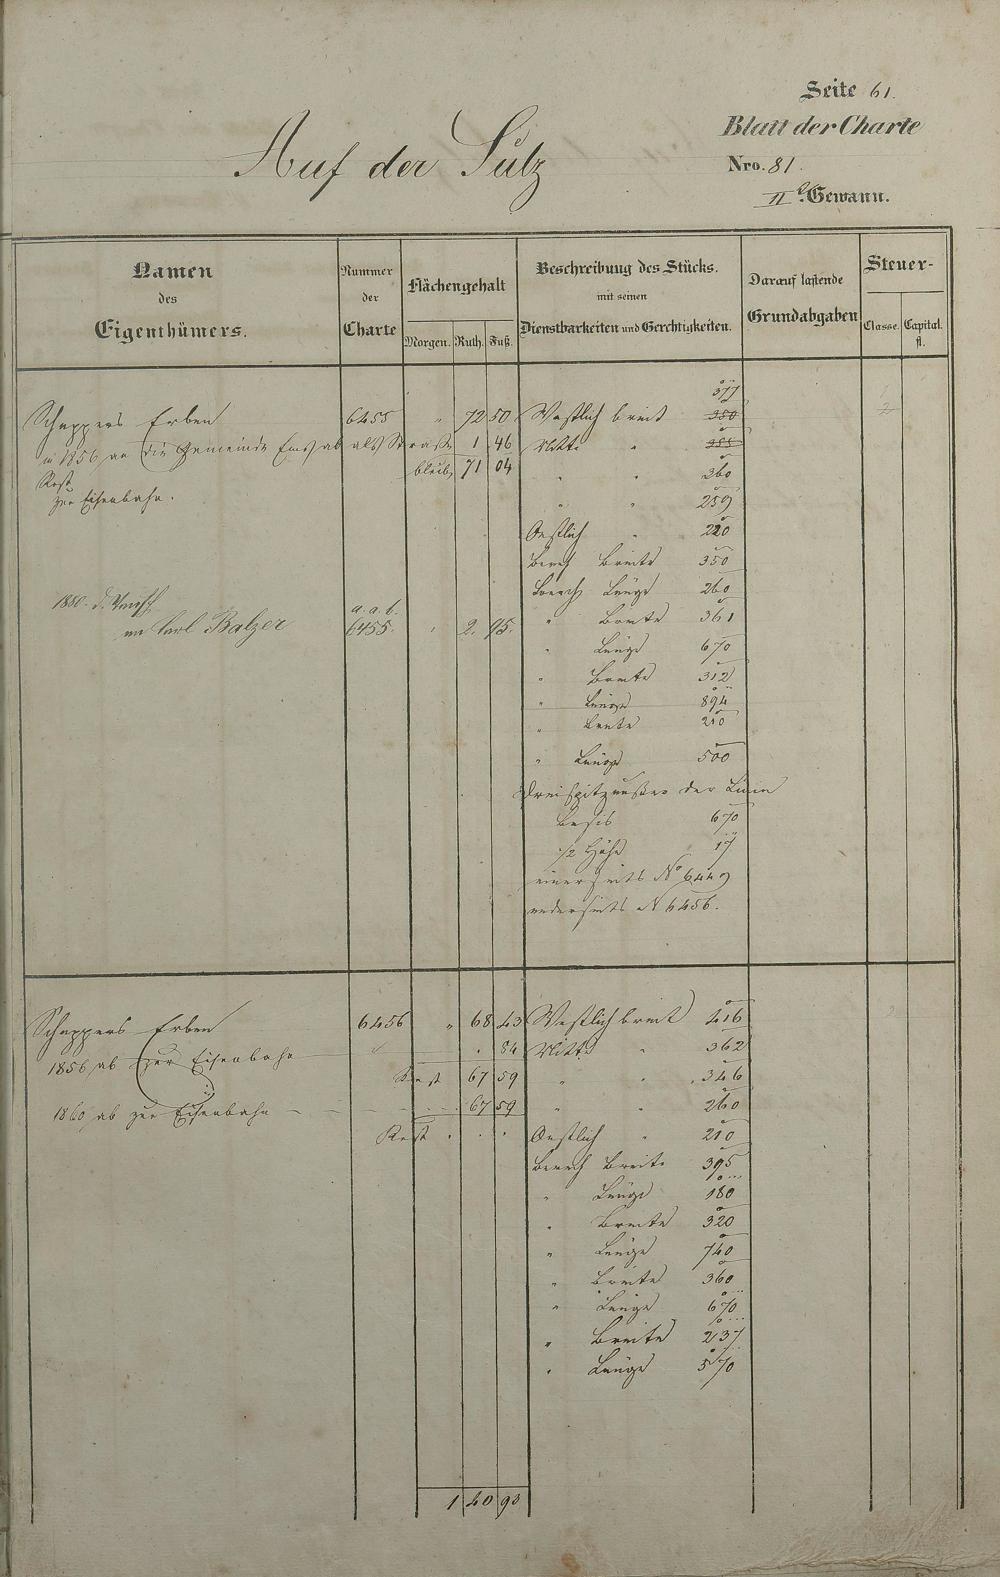 Seite 61.
Auf der Sülz
Blatt der Charte
Nro. 81.
II. Gewann.
Namen des Eigenthümers.
Nummer der Charte
Flächengehalt
Morgen. Ruth. Fuß.
Beschreibung des Stücks. mit seinen Dienstbarkeiten und Gerchtigkeiten.
Darauf lastende Grundabgaben
Steuer-
Classe. Capital. fl.
377
Schuppers Erben 6455 " 72 50 Westlich breit 350
in 1856 an die Gemeinde Ems ab als Straße 1 46 Mitte " 355
Rest bleibt 71 04 " " 360
zur Eisenbahn. " " 259
Oestlich " 220
Breite 350
Länge 260
1880. a.a.b. " Breite 361
an Carl Balzer 6455. " 2. 95.
" Länge 670
" Breite 312
" Länge 894
" Breite 210
" Länge 500
Dreispitz außer der Linie
Basis 670
1/2 Höhe 17
einerseits No 6449
anderseits N 6456.
Schuppers Erben 6456 " 68 43 Westlich breit 416
1856 ab zur Eisenbahn . 84 Mitte " 362
Rest 67 59 " " 346
1860 ab zur Eisenbahn - - - 67 59 " " 260
Rest . . . Oestlich " 210
Breite 395
" Länge 180
" Breite 320
" Länge 740
" Breite 360
" Länge 670
" Breite 237
" Länge 570
1 40 93